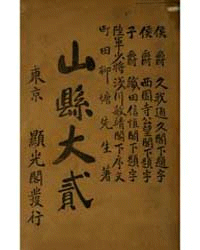 侯爵 久我通久閣下題字
侯爵 西園寺公望閣下題字
子爵 織田信恒閣下題字
陸軍少將 浅川敏靖閣下序文
町田柳塘先生著
山縣大貳
東京 顯光閣發行